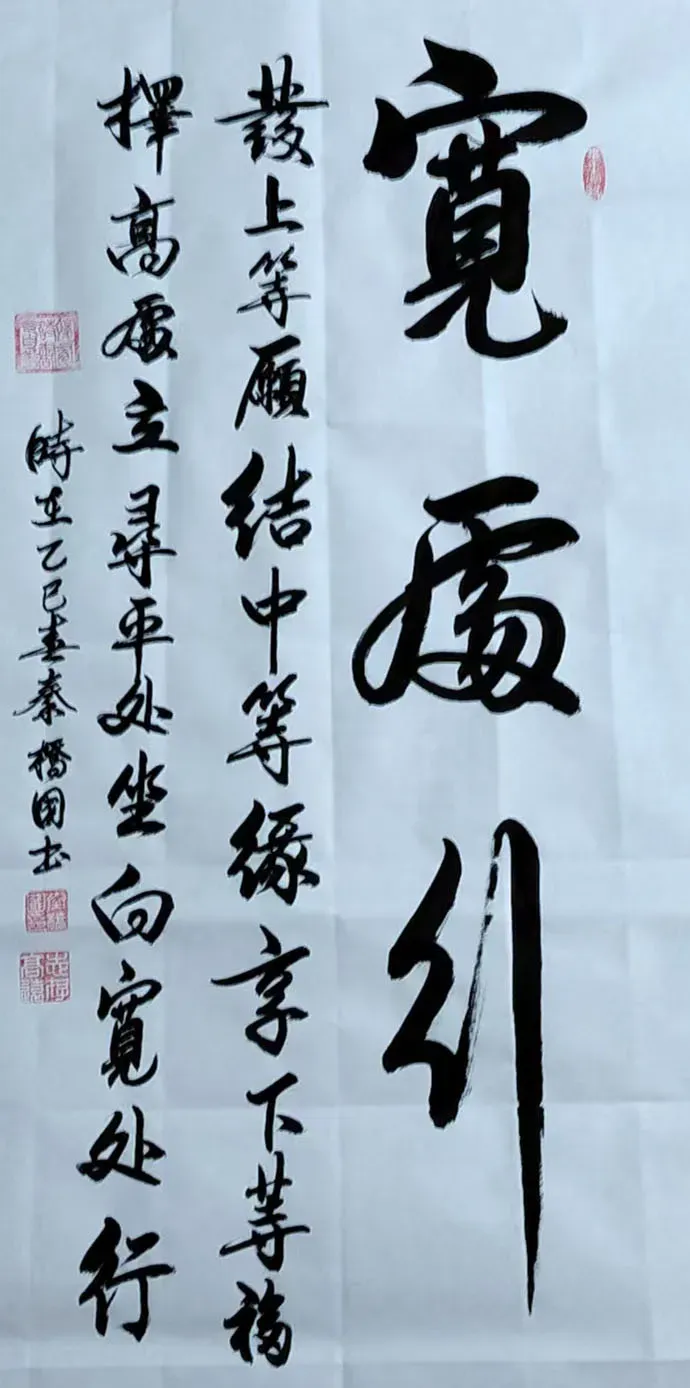 寬處行
發上等願結中等緣享下等福
擇高處立尋平处坐向寬处行
時在乙巳春秦橋国书
志存高遠